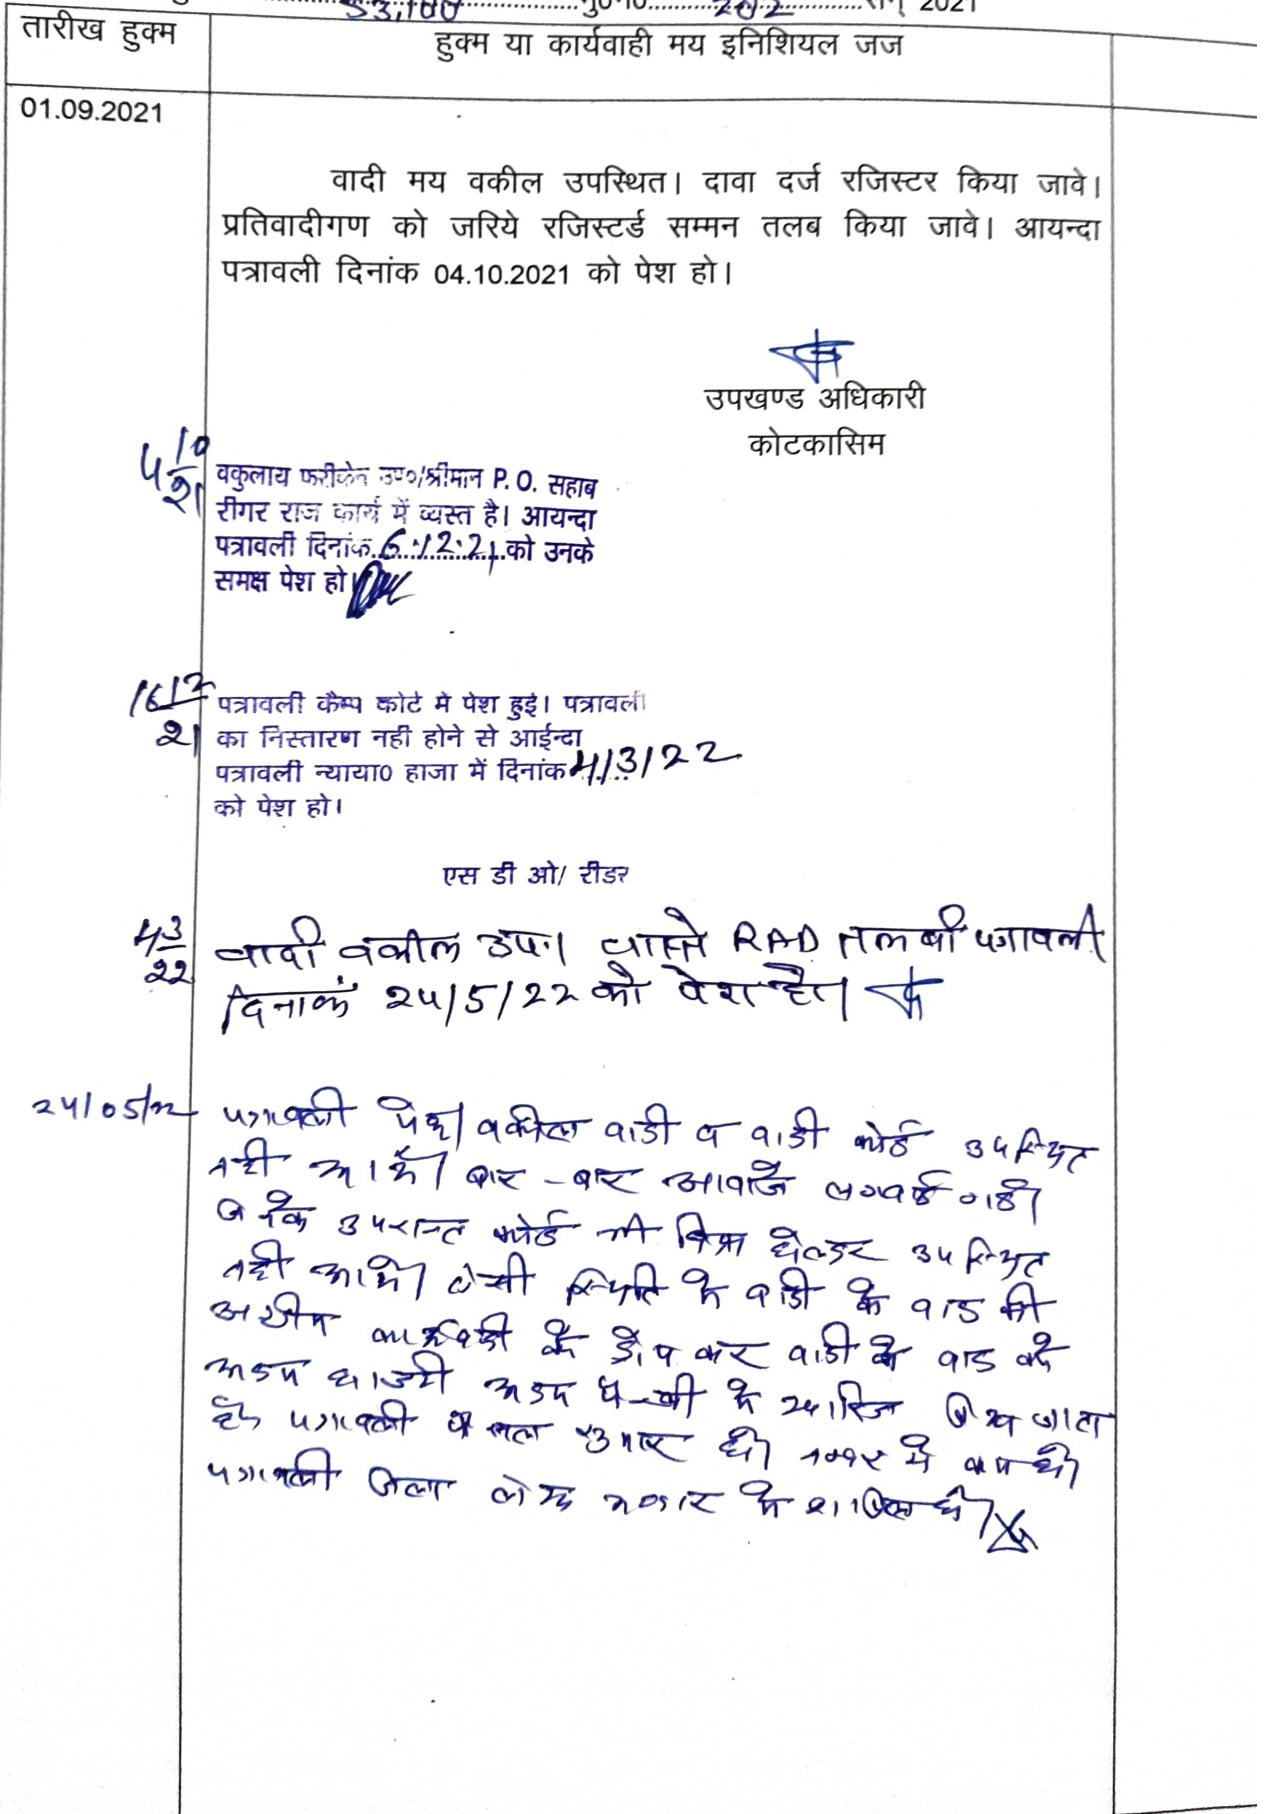 53,100 मु0न0 202 सन् 2021
तारीख हुक्म
हुक्म या कार्यवाही मय इनिशियल जज
01.09.2021
वादी मय वकील उपस्थित। दावा दर्ज रजिस्टर किया जावे।
प्रतिवादीगण को जरिये रजिस्टर्ड सम्मन तलब किया जावे। आयन्दा
पत्रावली दिनांक 04.10.2021 को पेश हो।
उपखण्ड अधिकारी
कोटकासिम
4/10/21
वकुलाय फरीकेन उप०/श्रीमान P. O. सहाब
दीगर राज कार्य में व्यस्त है। आयन्दा
पत्रावली दिनांक 6.12.21 को उनके
समक्ष पेश हो।
16/12/21
पत्रावली कैम्प कोर्ट मे पेश हुई। पत्रावली
का निस्तारण नही होने से आईन्दा
पत्रावली न्याया0 हाजा में दिनांक 4/3/22
को पेश हो।
एस डी ओ/ रीडर
4/3/22
वादी वकील उप। वास्ते RAD तलबी पत्रावली
दिनांक 24/5/22 को पेश हो।
24/05/22
पत्रावली पेश। वकील वादी व वादी कोई उपस्थित
नही आये। बार-बार आवाजे लगवाई गई।
जिसके उपरान्त कोई भी ब्रिफ होल्डर उपस्थित
नही आये। ऐसी स्थिति में वादी के वाद की
अग्रीम कार्यवाही को ड्रोप कर वादी के वाद को
अदम हाजरी अदम पैरवी में खारिज किया जाता
है। पत्रावली फैसला शुमार हो। नम्बर से कम हो।
पत्रावली जिला लेख भण्डार में दाखिल हो।